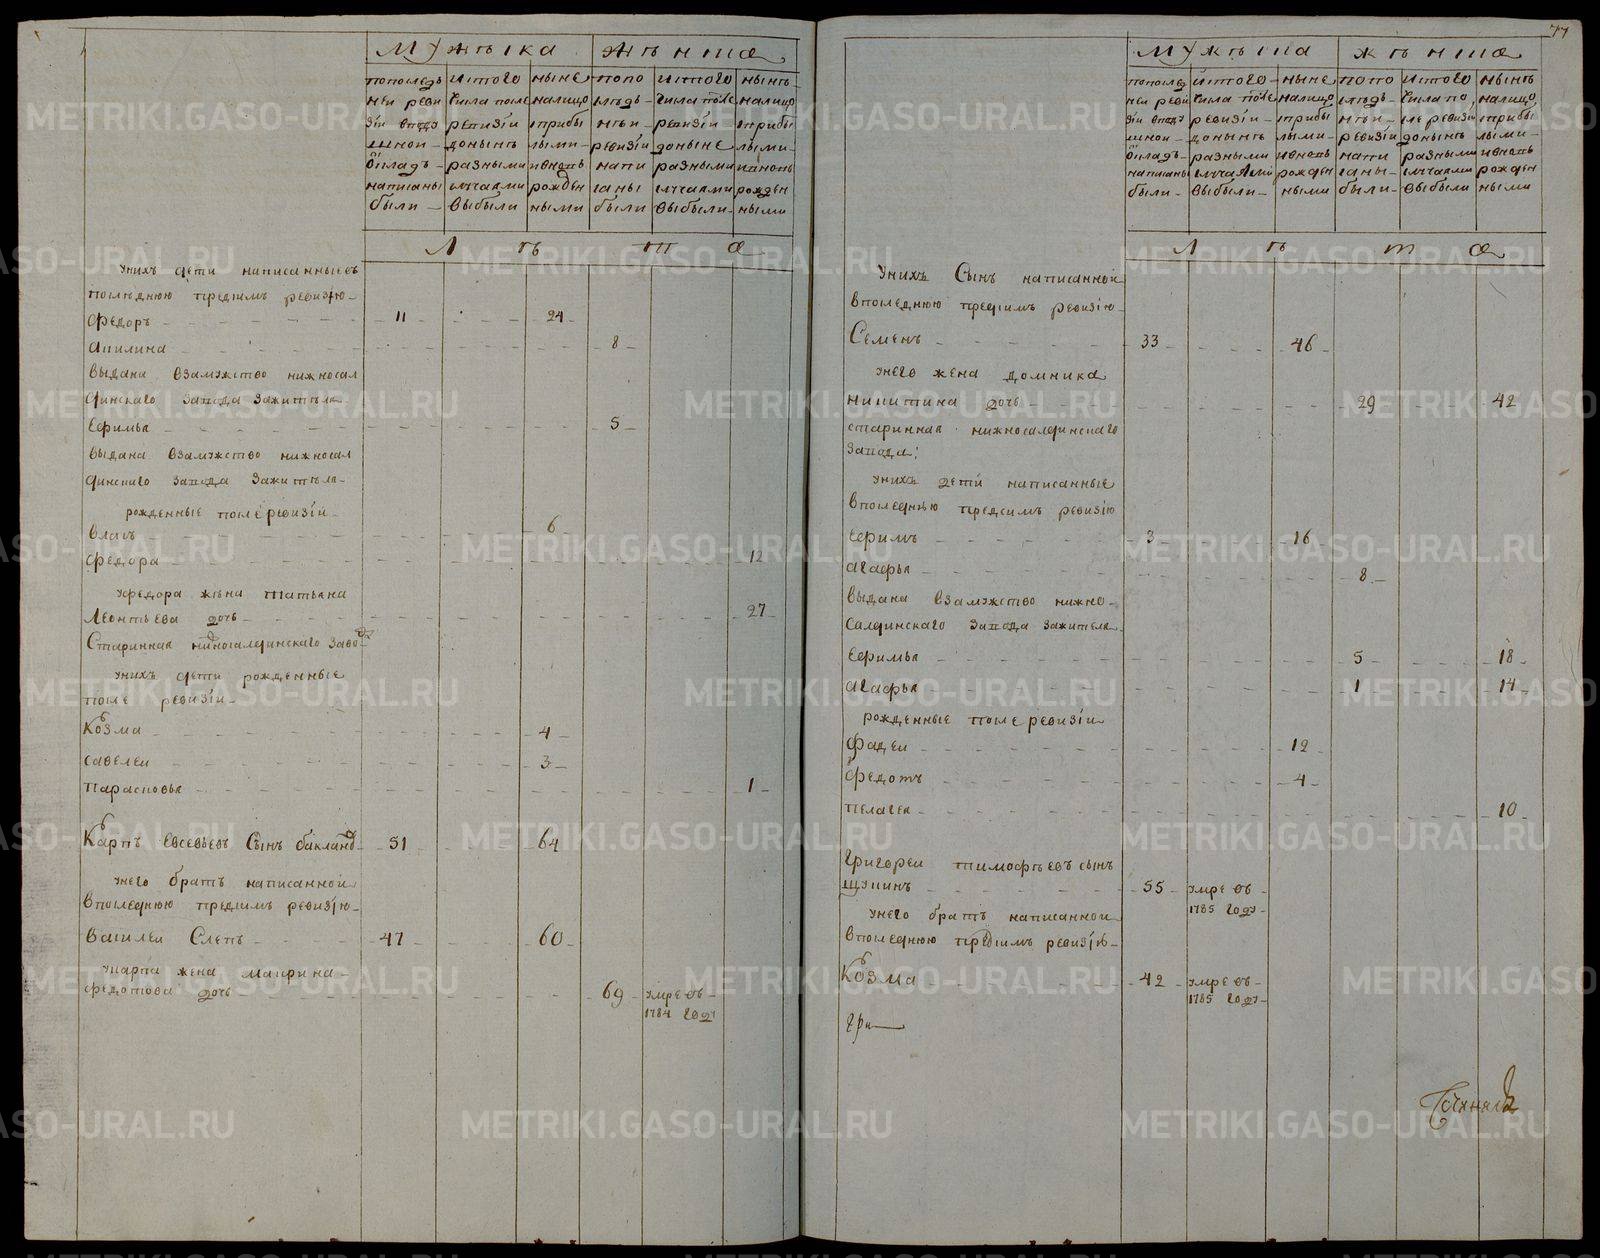 77
Мужеска
женска
попослед
ней реви
зіи вподу
шной
окладъ
написаны
были
изтого
числа после
ревизіи
донынѣ
разными
случаями
выбыли
ныне
налицо
сприбы
лыми
ивновь
рожден
ными
попо
слѣдъ
нѣи
ревизіи
напи
саны
были
изтого
числа после
ревизіи
доныне
разными
случаями
выбыли
нынѣ
налицо
сприбы
лыми
ивновь
рожден
ными
Л ѣ т а
унихъ дети написанныевъ
последнюю предсимъ ревизію
Федоръ 11 24
Акилина 8
выдана взамужство нижносал
динскаго завода зажителя
Ефимья 5
выдана взамужство нижносал
динскаго завода зажителя
рожденные после ревизіи
Власъ 6
Федора 12
уфедора жена татьяна
Леонтьева дочь 27
Старинная нижносалдинскаго завода
унихъ дети рожденные
после ревизіи
Козма 4
Савелеи 3
Парасковья 1
Карпъ Евсевьевъ Сынъ бакландъ 51 64
унего братъ написанной
впоследнюю предсимъ ревизію
Василеи Слепъ 47 60
укарпа жена маврина
федотова дочь 69 умре въ
1784 году
Мужеска
женска
попослед
ней реви
зіи вподу
шной
окладъ
написаны
были
изтого
числа после
ревизіи
донынѣ
разными
случаями
выбыли
ныне
налицо
сприбы
лыми
ивновь
рожден
ными
попо
слѣдъ
нѣи
ревизіи
напи
саны
были
изтого
числа по
сле ревизіи
донынѣ
разными
случаями
выбыли
нынѣ
налицо
сприбы
лыми
ивновь
рожден
ными
Л ѣ т а
унихъ Сынъ написанной
впоследнюю предсимъ ревизію
Семенъ 33 46
унего жена домника
никитина дочь 29 42
старинная нижносалдинскаго
завода
унихъ дети написанные
впоследнюю предсимъ ревизію
Ефимъ 3 16
Агафья 8
выдана взамужство нижно
салдинскаго завода зажителя
Ефимья 5 18
Агафья 1 14
рожденные после ревизіи
Фадеи 12
Федотъ 4
Пелагея 10
Григореи тимофѣевъ сынъ
щукинъ 55 умре въ
1785 году
унего братъ написанной
впоследнюю предсимъ ревизію
Козма 42 умре въ
1785 году
гри
METRIKI.GASO-URAL.RU